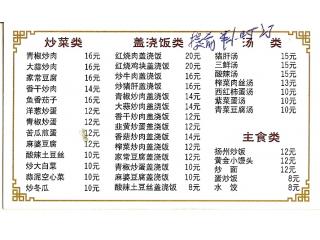 炒菜类
青椒炒肉 16元
大蒜炒肉 16元
家常豆腐 16元
香干炒肉 14元
鱼香茄子 16元
洋葱炒蛋 12元
青椒炒蛋 12元
苦瓜煎蛋 12元
麻婆豆腐 12元
酸辣土豆丝 10元
炒大白菜 10元
蒜泥空心菜 10元
炒冬瓜 10元
盖浇饭类
红烧肉盖浇饭 20元
红烧鸡块盖浇饭 20元
炒牛肉盖浇饭 16元
炒猪肝盖浇饭 16元
青椒炒肉盖浇饭 14元
大蒜炒肉盖浇饭 14元
香干炒肉盖浇饭 12元
韭黄炒蛋盖浇饭 12元
香干肉丝盖浇饭 12元
榨菜炒肉盖浇饭 12元
家常豆腐盖浇饭 12元
青椒炒蛋盖浇饭 10元
麻婆豆腐盖浇饭 10元
酸辣土豆丝盖浇饭 8元
提前
汤类
猪肝汤 15元
三鲜汤 15元
酸辣汤 15元
榨菜肉丝汤 13元
西红柿蛋汤 10元
紫菜蛋汤 10元
青菜豆腐汤 10元
主食类
扬州炒饭 12元
黄金小馒头 12元
炒面 12元
蛋炒饭 8元
水饺 8元